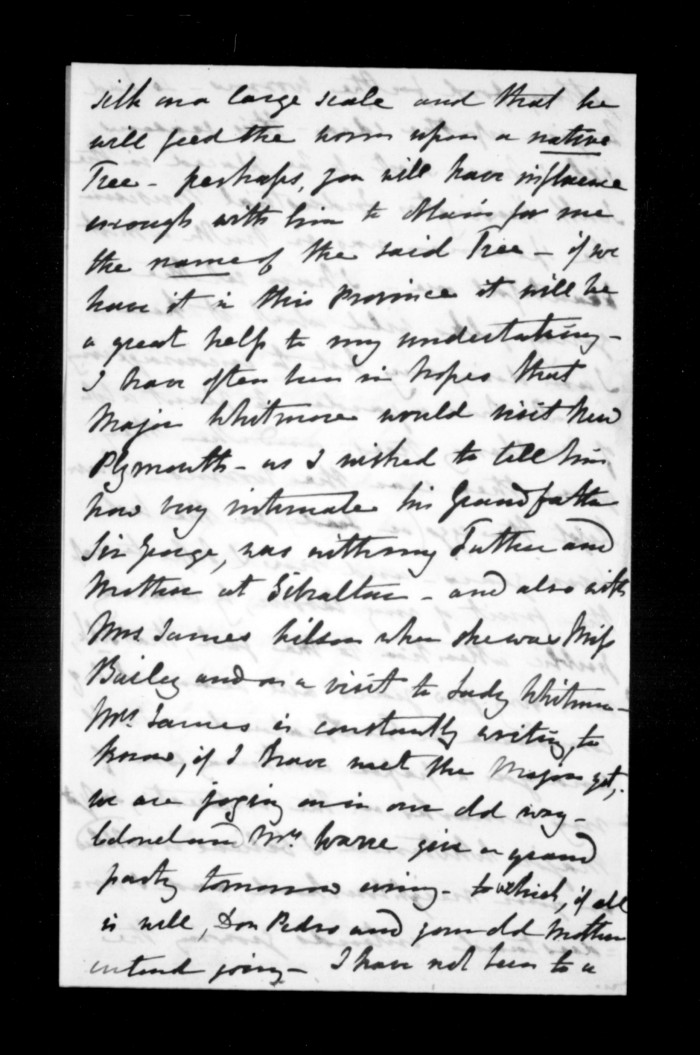 silk on a large scale and that he
will feed the worm upon a native
Tree - perhaps, you will have influence
enough with him to obtain for me
the name of the said Tree - if we
have it in this Province it will be
a great help to my undertaking -
I have often been in hopes that
Major Whitmore would visit New
Plymouth - as I wished to tell him
how very intimate his Grandfather
Sir George, was with my Father and
Mother at Gibraltar - and also with
Mrs James Wilson when she was Miss
Bailey and on a visit to Lady Whitmore -
Mrs James is constantly writing, to
know, if I have met the Major yet,
we are joging on in our old way -
Colonel and Mrs Warre give a grand
party tomorrow evening - to which, if all
is well, Don Pedro and your old Mother
intend going - I have not been to a